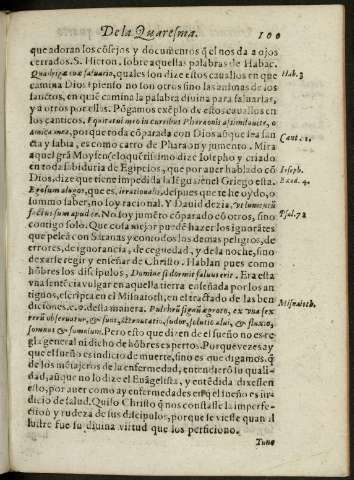 De la Quaresma.
100
que adoran los cõsejos y documẽtos q̃ el nos da a ojos
cerrados. S. Hieron. sobre aquellas palabras de Habac.
Quadrigæ tuæ saluatio, quales son dize estos cauallos en que
camina Dios? pienso no son otros sino las animas de los
sanctos, en quiẽ camina la palabra diuina para saluarlas,
y a otros por ellas. Põgamos exẽplo en estos cauallos en
los canticos. Equitatui meo in curribus Pharaonis assimilaui te, o
amica mea, por que toda cõparada con Dios aũque sea san
cta y sabia, es como carro de Pharaon y jumento. Mira
aquel grã Moysen eloquẽtissimo dize Iosepho y criado
en toda sabiduria de Egipcios, que por auer hablado cõ
Dios, dize que tiene impedida la lẽgua: en el Griego esta.
Ego sum alogos, que es, irrationalis, despues que te he oydo, o
summo saber, no soy racional. Y Dauid dezia, Vt iumentũ
factus sum apud te. No soy jumẽto cõparado cõ otros, sino
contigo solo. Que cosa mejor puedẽ hazer los ignorãtes
que peleã con Satanas y con todos los demas peligros, de
errores, de ignorancia, de ceguedad, y de la noche, sino
dexarse regir y enseñar de Christo? Hablan pues como
hõbres los discipulos, Domine si dormit saluus erit. Era esta
vna sentẽcia vulgar en aquella tierra enseñada por los an
tiguos, escripta en el Misnaioth, en el tractado de las ben
diciones. c. 9. desta manera. Pulchrũ signũ ægroto, ex vna sex
rerũ obseruatur, & sunt, sternutatio, sudor, solutio alui, & fluxio,
somnus & somnium. Pero esto que dizen de el sueño no es re
gla general ni dicho de hõbres espertos. Porque vezes ay
que el sueño es indicio de muerte, sino es que digamos, q̃
de los mẽsajeros de la enfermedad, entendiero su quali-
dad, aũque no lo dize el Euãgelista, y entẽdida dixessen
esto, por auer como ay enfermedades en q̃ el sueño es in-
dicio de salud. Quiso Christo q̃ nos constasse la imperfe-
ctiõ y rudeza de sus discipulos, porque se viesse quan il
lustre fue su diuina virtud que los perficiono.
Tuuo
Hab. 3
Cant. 1.
Ioseph.
Exod. 4.
Psal. 72
Misnaioth.